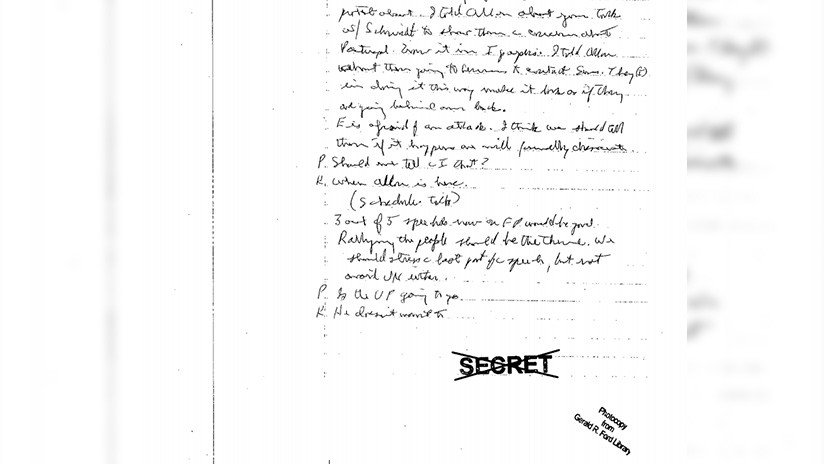 about. I told Allon about your talk
w/ Schmidt to show them c concern about
Portugal. I told Allon
about them going to to contact . They
in doing it this way make it look as if they
are going behind our back.
E is afraid of an attack. I think we should tell
them if it happens we will
P. Should we tell I that?
K. When Allon is here.
(Schedule talk)
3 out of 5 speeches now on FP would be good.
Rallying the people should be the theme. We
should stress c last part of c speech, but not
avoid VN either.
P. Is the VP going to go.
K. He doesn't want to
SECRET
Photocopy
from
Gerald R. Ford Library